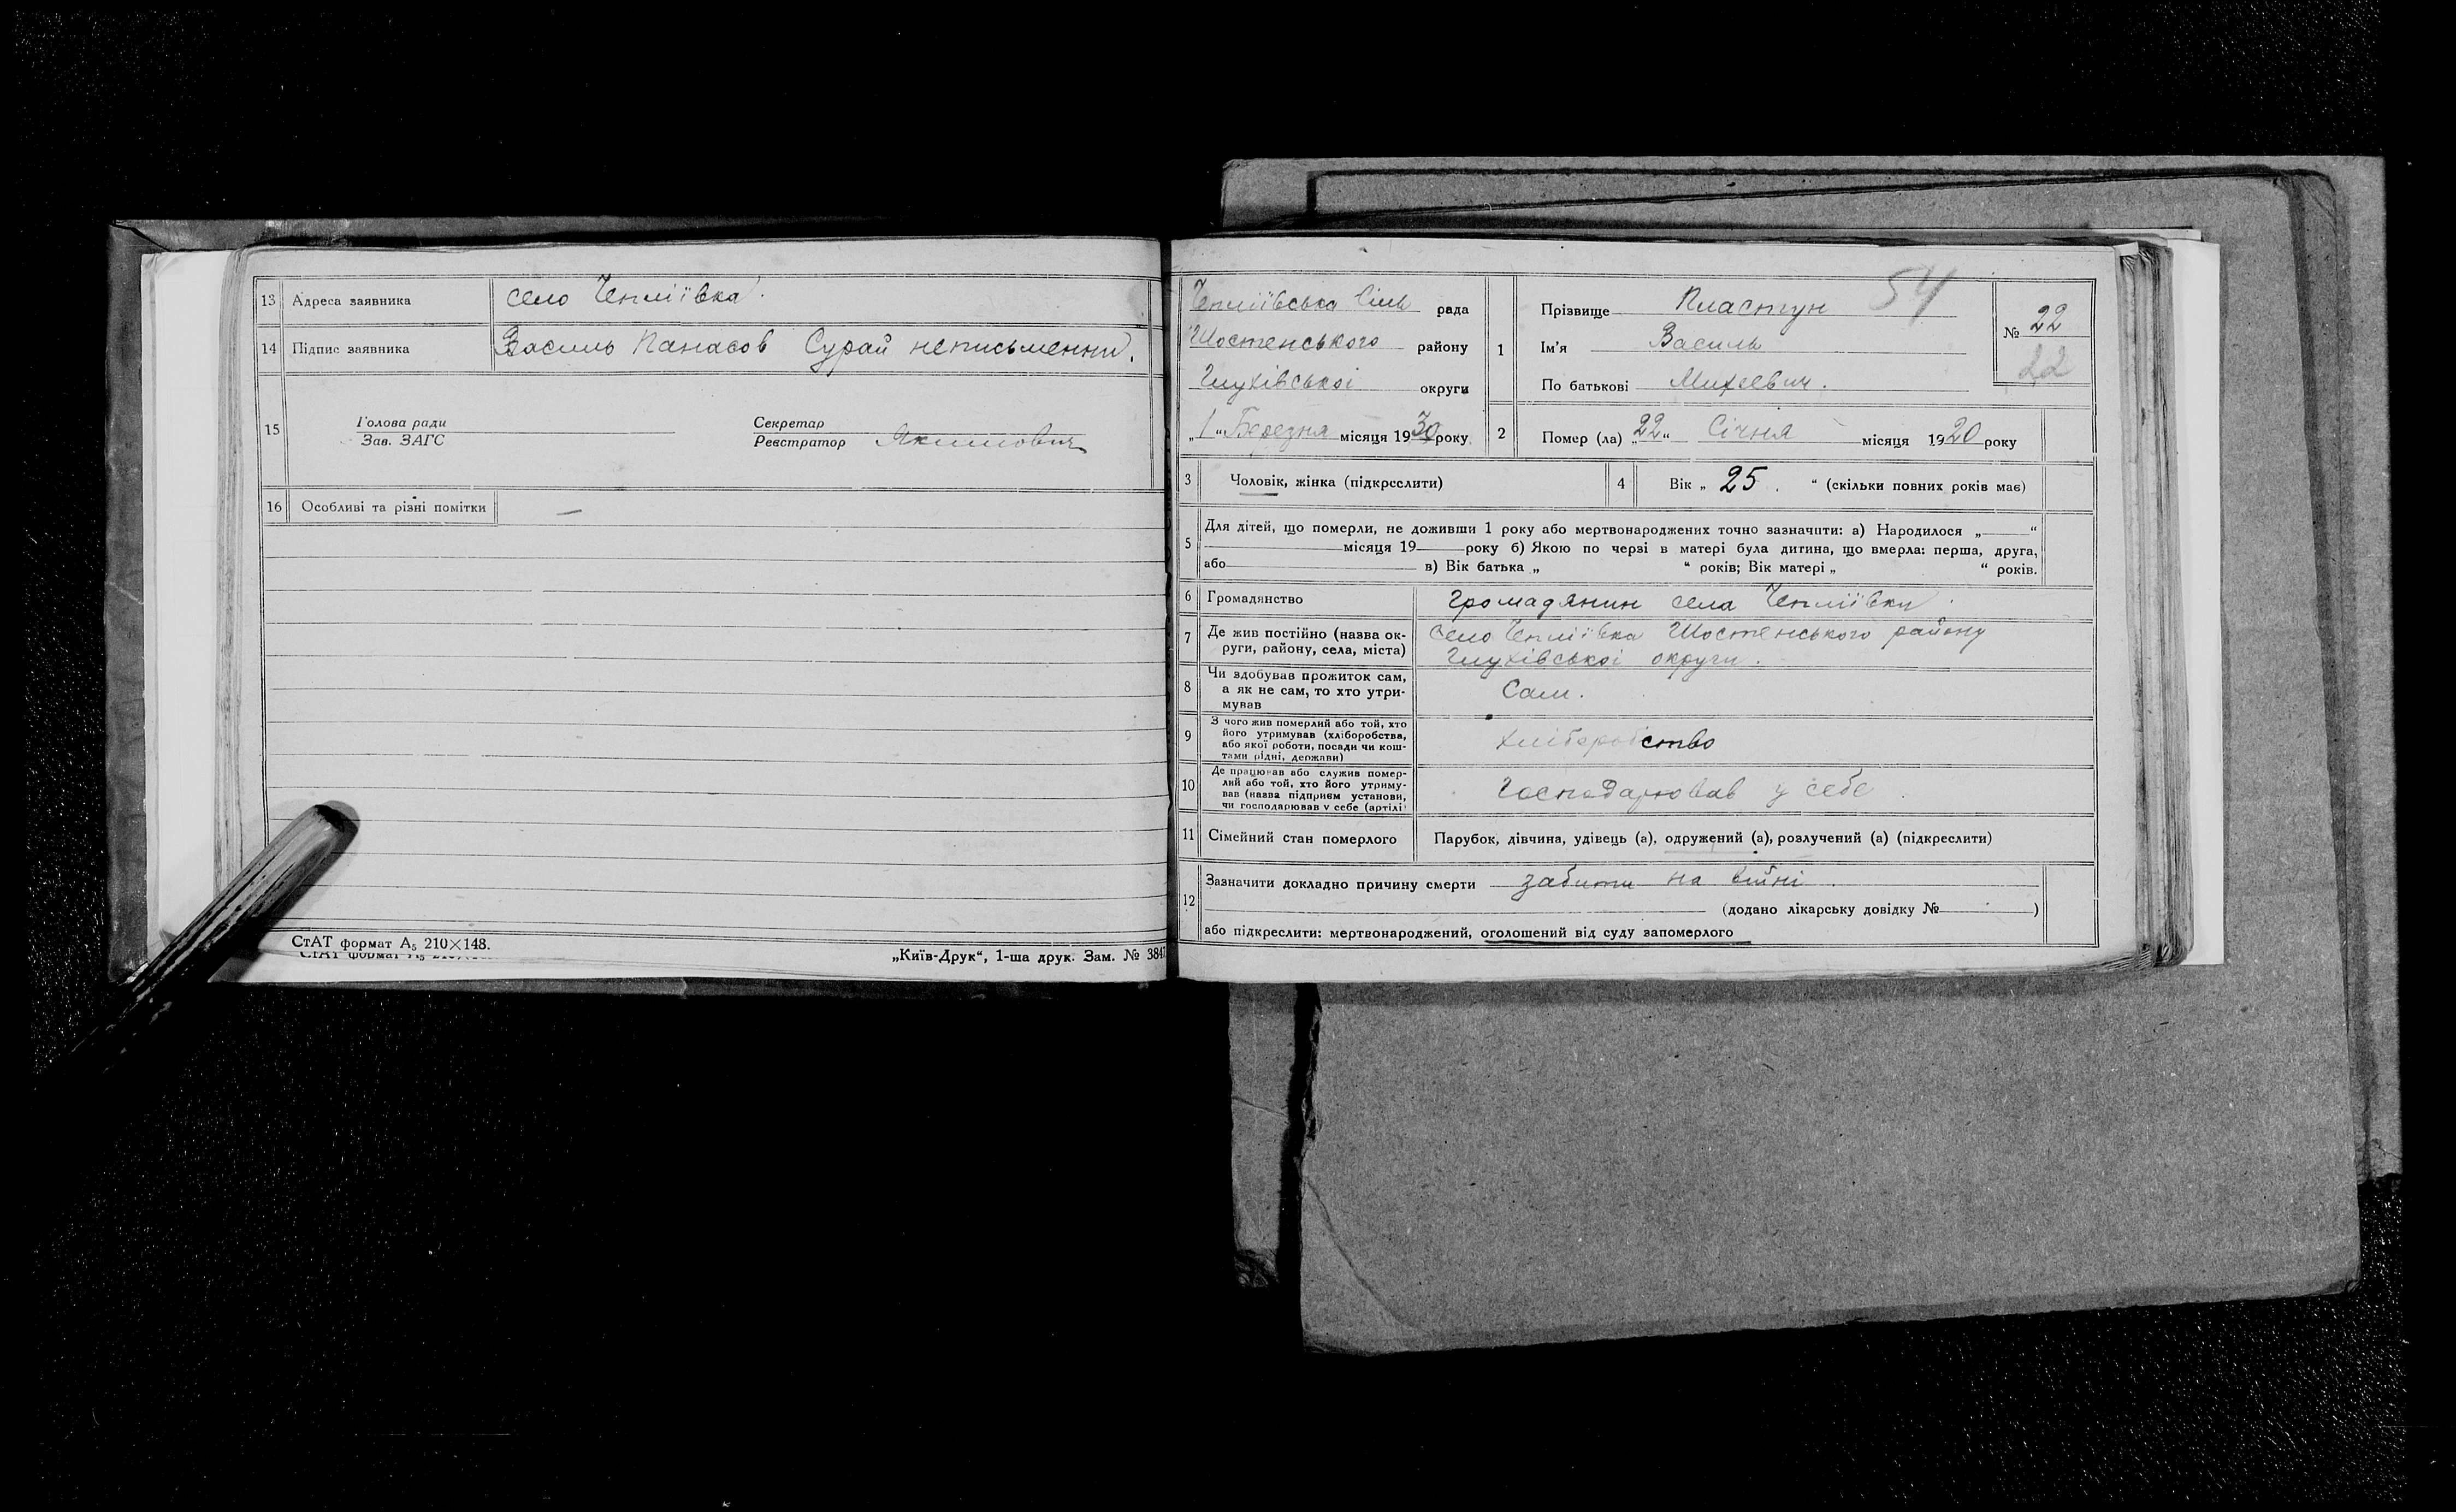 13 Адреса заявника село Чепліївка.
14 Підпис заявника Василь Панасов Сурай неписьменни.
15 Голова ради
Зав. ЗАГС
Секретар
Реєстратор Якимович
16 Особливі та різні помітки —
СтАТ формат А₅ 210×148.
„Київ-Друк“, 1-ша друк. Зам. № 3847
Чепліївська Сіль рада
Шостенського району
Глухівської округи
„1“ Березня місяця 1930 року
54
1 Прізвище Пластун
Ім'я Василь
По батькові Михеевич.
№ 22
22
2 Помер (ла) „22“ Січня місяця 1920 року
3 Чоловік, жінка (підкреслити)
4 Вік „ 25. “ (скільки повних років має)
5 Для дітей, що померли, не доживши 1 року або мертвонароджених точно зазначити: а) Народилося „ “
місяця 19 року б) Якою по черзі в матері була дитина, що вмерла: перша, друга,
або в) Вік батька „ “ років; Вік матері „ “ років.
6 Громадянство громадянин села Чепліївки.
7 Де жив постійно (назва ок-
руги, району, села, міста)
село Чепліївка Шостенського району
Глухівської округи.
8 Чи здобував прожиток сам,
а як не сам, то хто утри-
мував
Сам.
9 З чого жив померлий або той, хто
його утримував (хліборобства,
або якої роботи, посади чи кош-
тами рідні, держави)
хліборобство
10 Де працював або служив помер-
лий або той, хто його утриму-
вав (назва підприєм установи,
чи господарював у себе (артілі)
Господарював у себе.
11 Сімейний стан померлого Парубок, дівчина, удівець (а), одружений (а), розлучений (а) (підкреслити)
12 Зазначити докладно причину смерти забити на війні.
(додано лікарську довідку № )
або підкреслити: мертвонароджений, оголошений від суду запомерлого